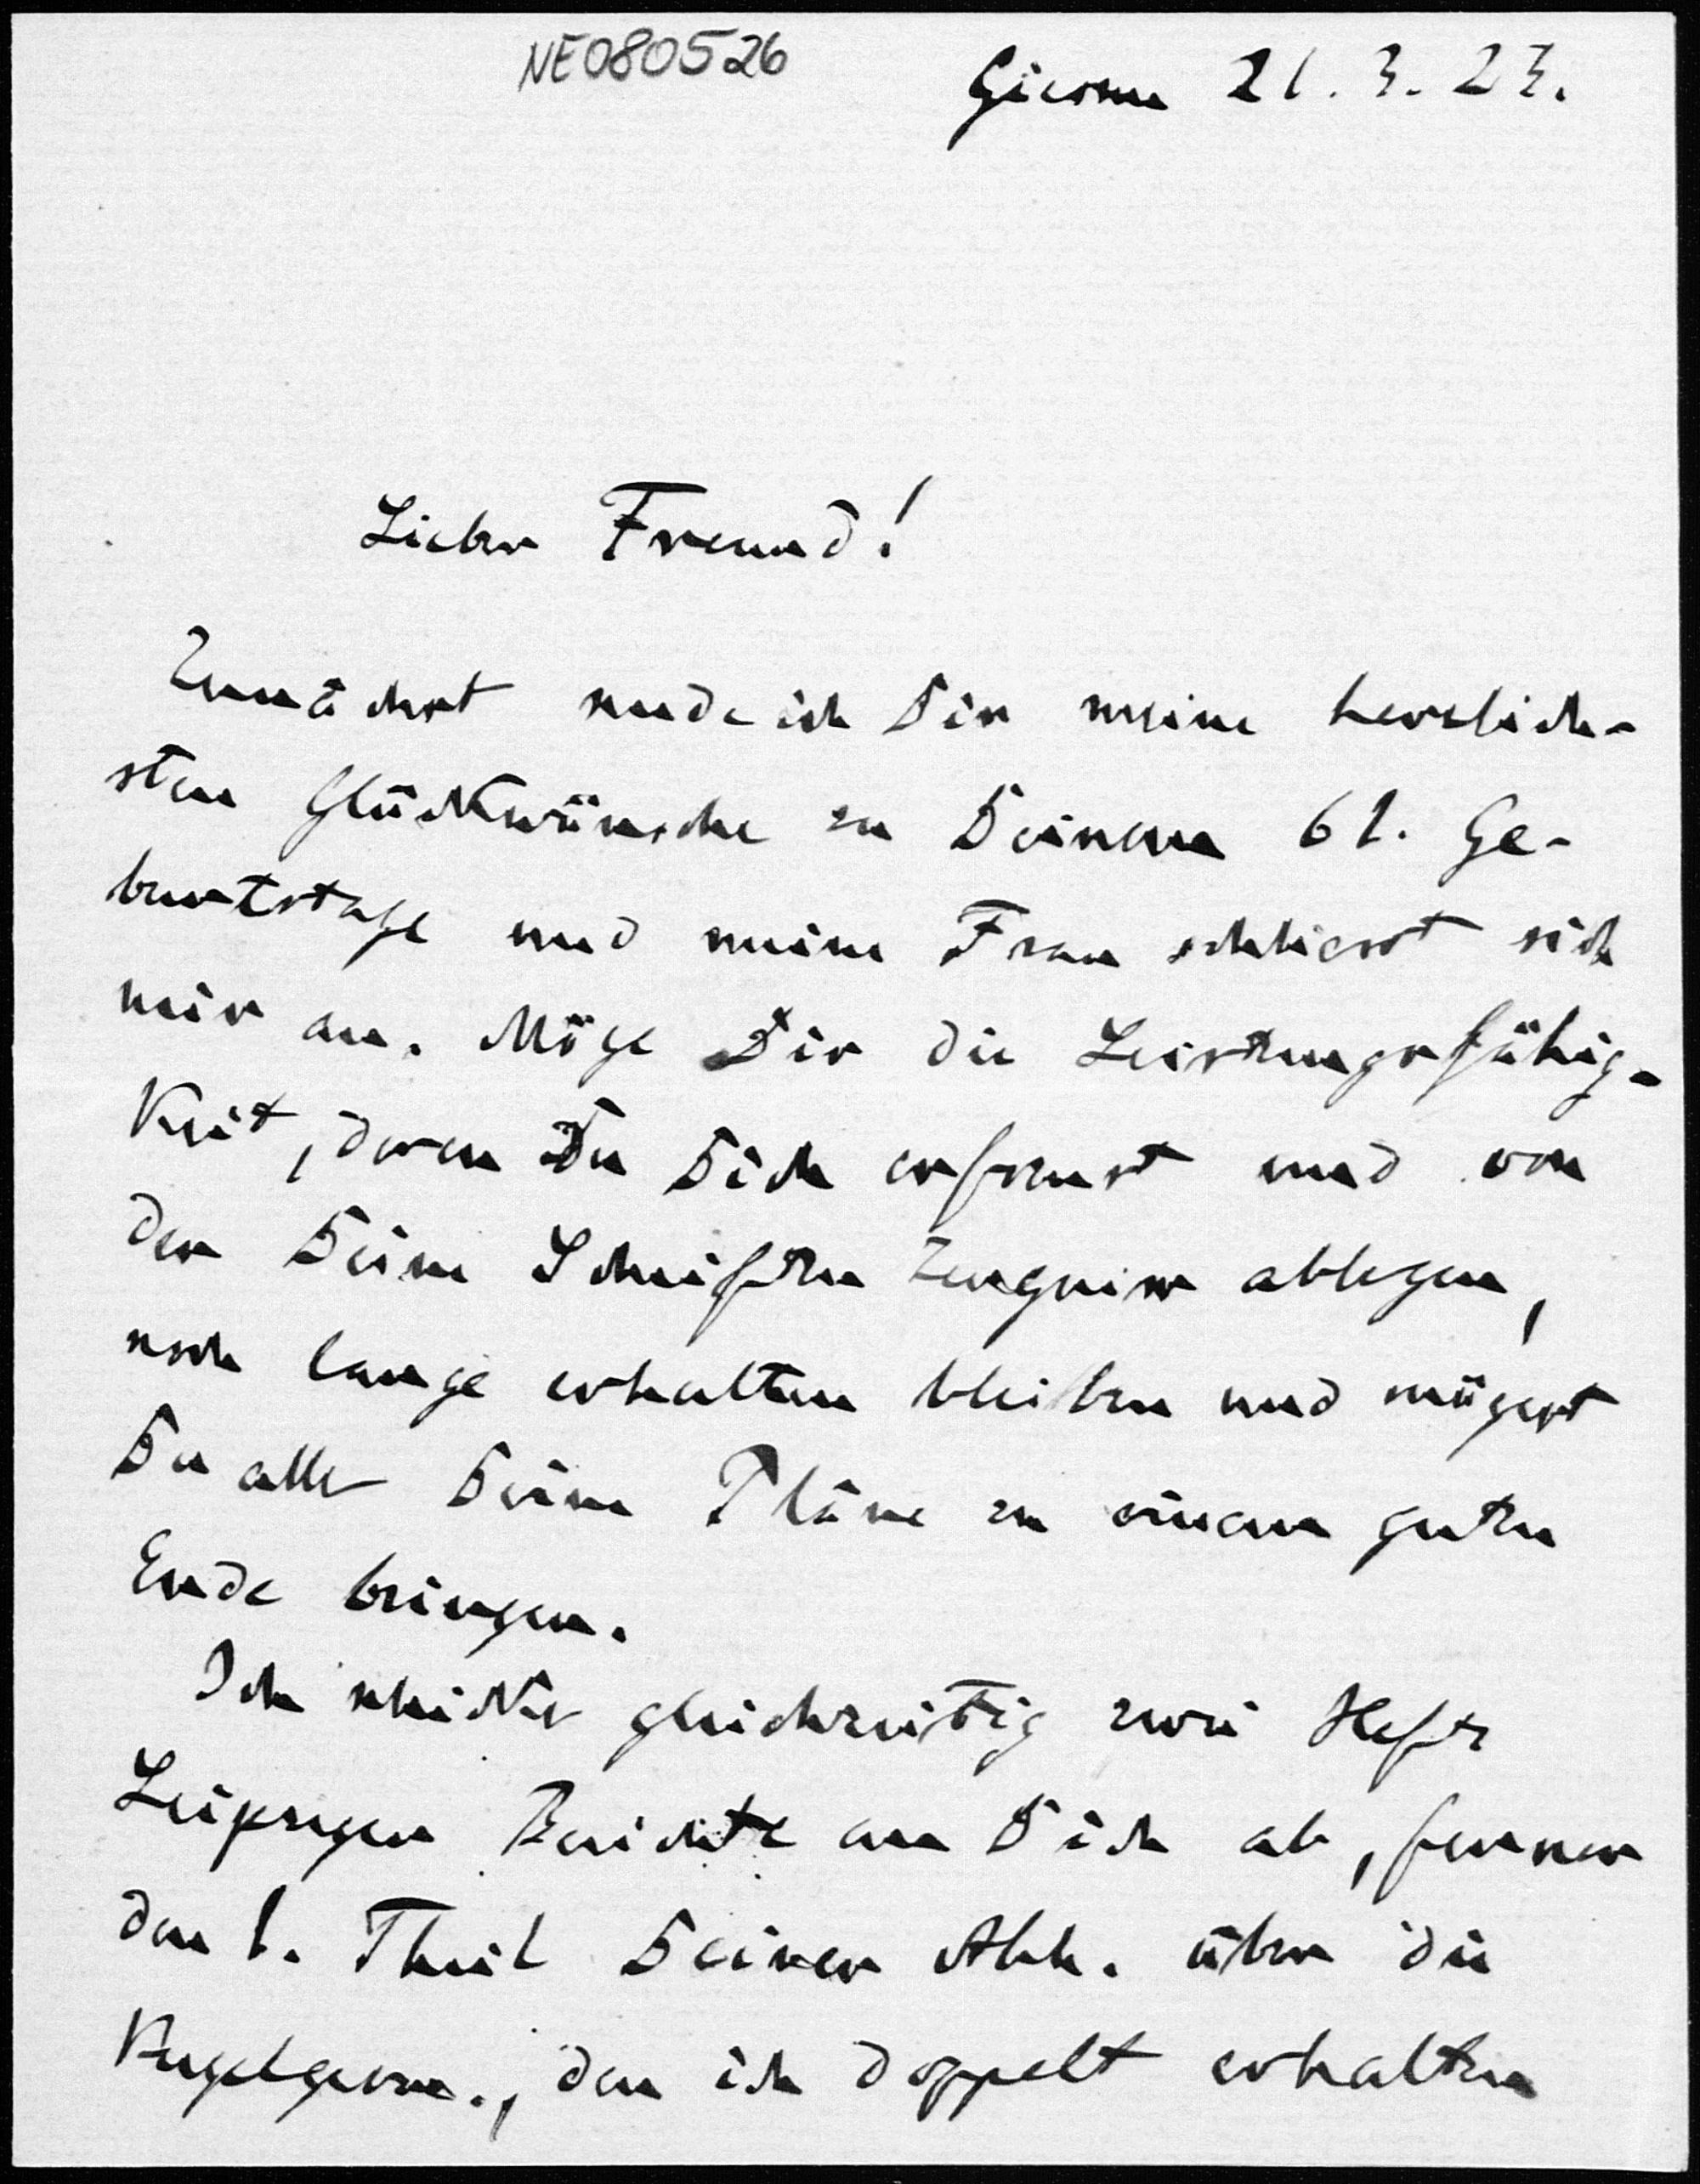 NE080526
Giessen 21. 3. 23.
Lieber Freund!
Zunächst sende ich Dir meine herzlich-
sten Glückwünsche zu Deinem 61. Ge-
burtstage und meine Frau schliesst sich
mir an. Möge Dir die Leistungsfähig-
keit, deren Du Dich erfreust und von
der Deine Schriften Zeugniss ablegen,
noch lange erhalten bleiben und mögest
Du alle Deine Pläne zu einem guten
Ende bringen.
Ich schicke gleichzeitig zwei Hefte
Leipziger Berichte an Dich ab, ferner
den 1. Theil Deiner Abh. über die
Kugelgeom., den ich doppelt erhalten